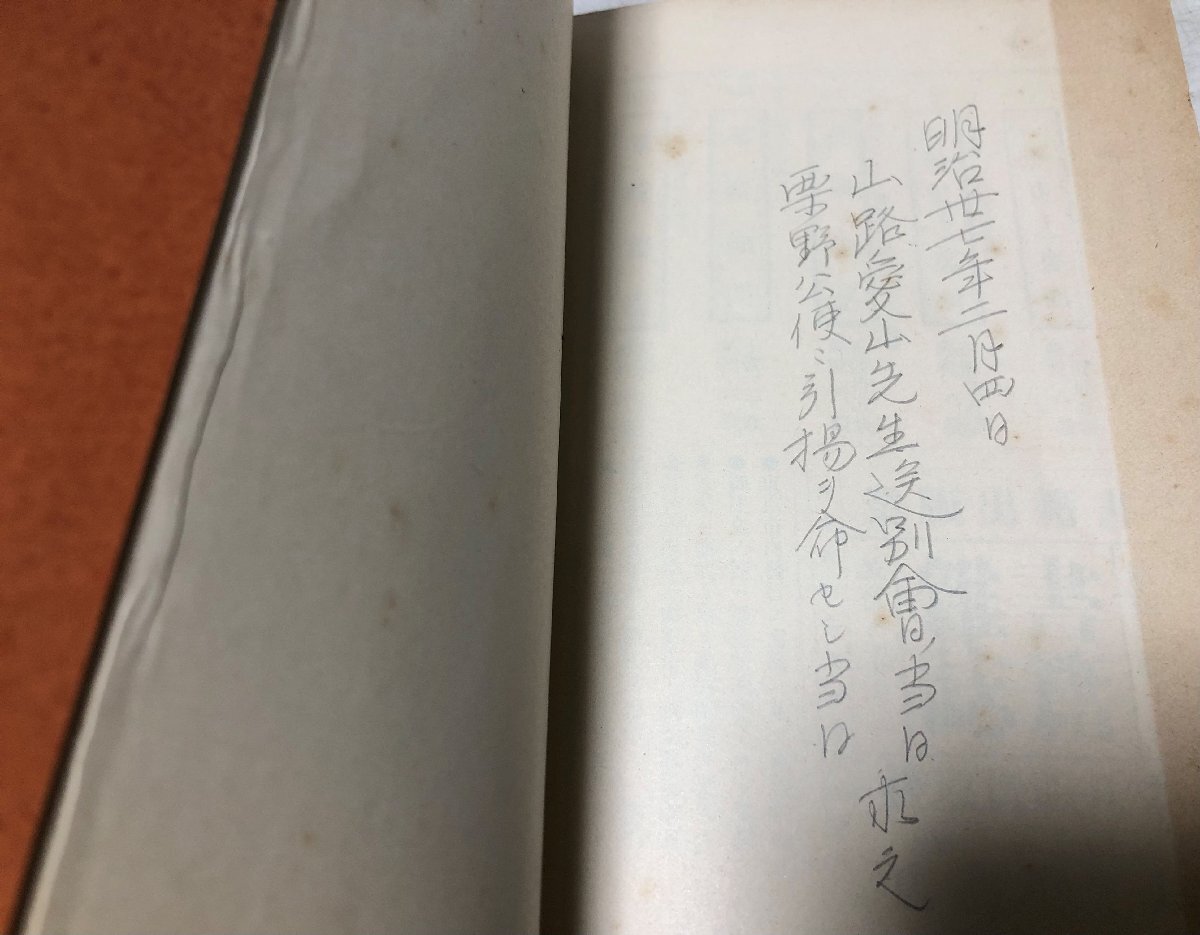 明治卅七年二月四日
山路愛山先生送別會当日 求之
栗野公使ニ引揚ヲ命セし当日